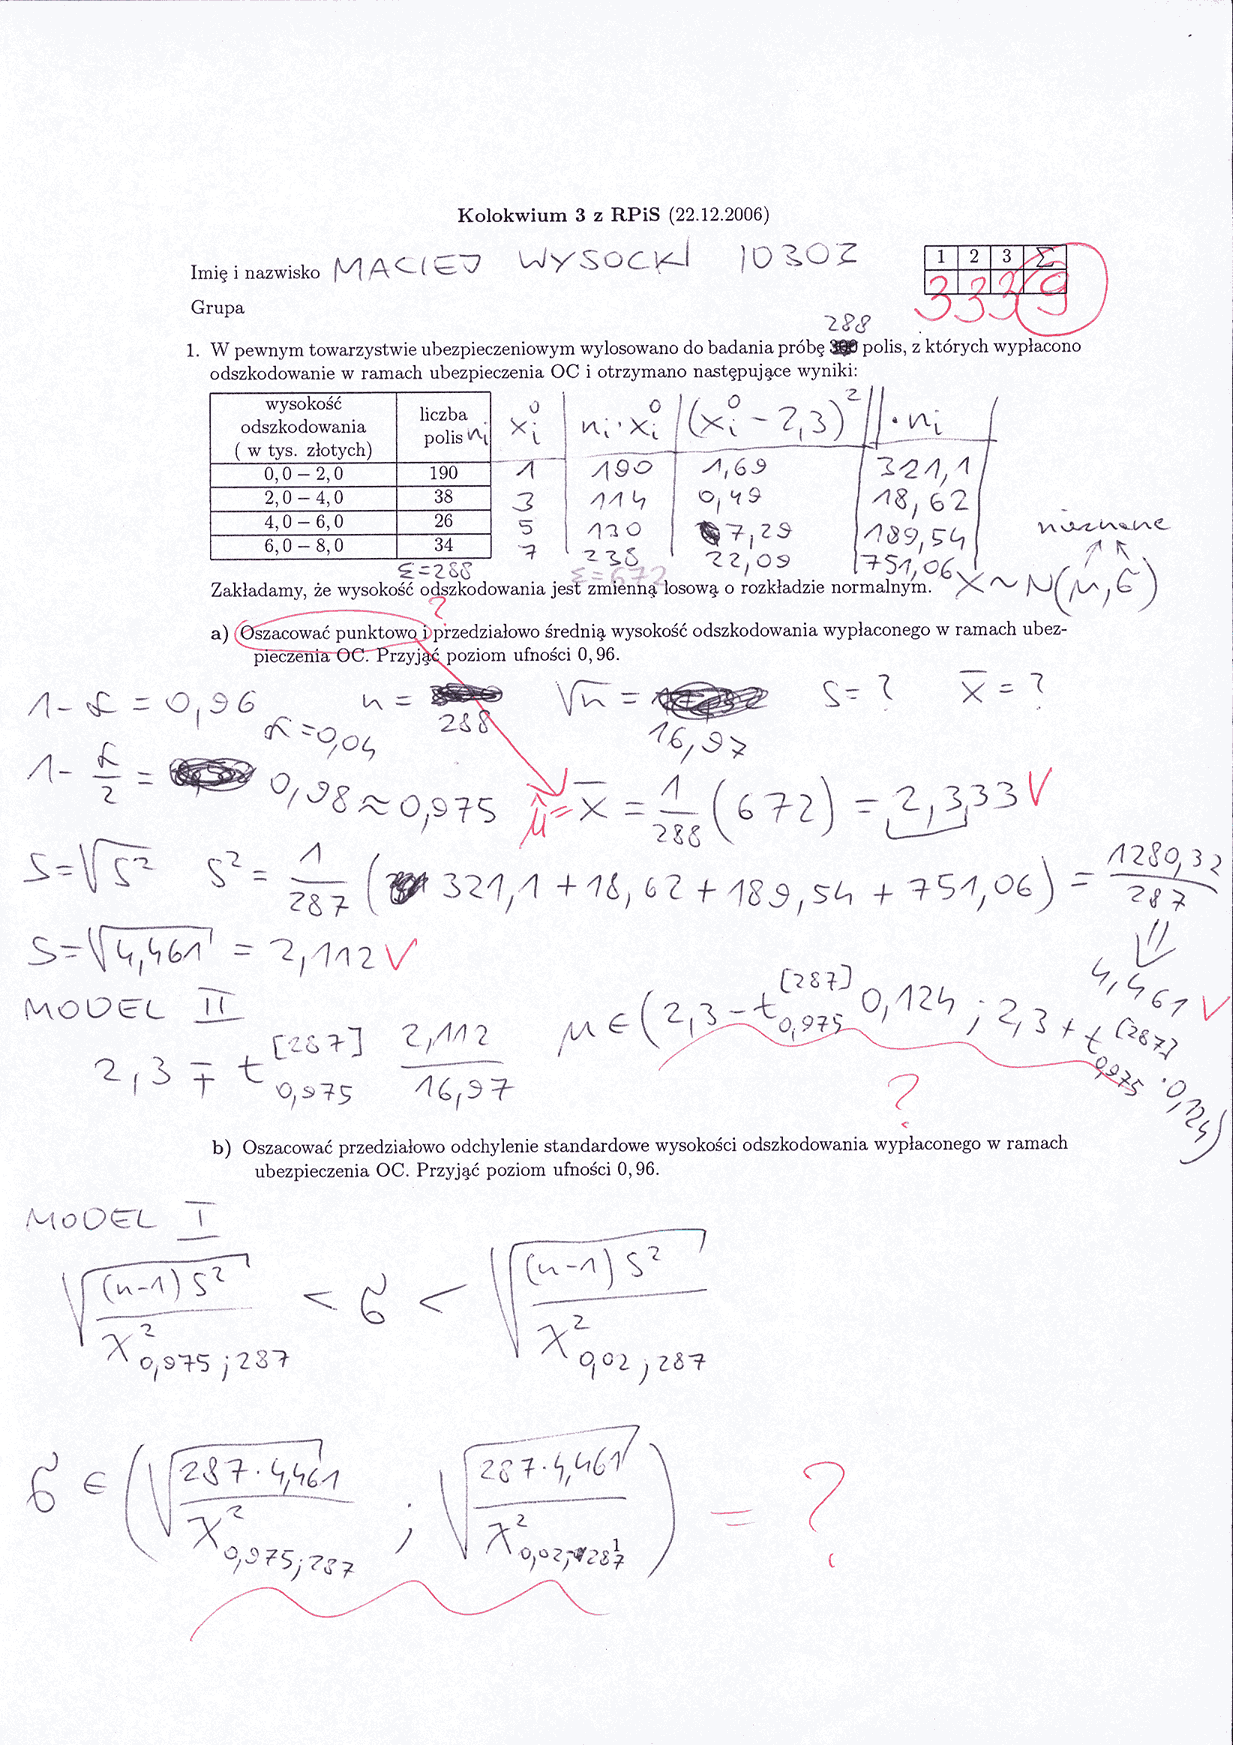 Kolokwium 3 z RPiS (22.12.2006)
Imię i nazwisko MACIEJ WYSOCKI 10302
1 2 3 Σ
3 3 3 9
Grupa
288
1. W pewnym towarzystwie ubezpieczeniowym wylosowano do badania próbę polis, z których wypłacono
odszkodowanie w ramach ubezpieczenia OC i otrzymano następujące wyniki:
wysokość odszkodowania ( w tys. złotych) | liczba polis nᵢ | x̊ᵢ | nᵢ·x̊ᵢ | (x̊ᵢ - 2,3)² | ·nᵢ
0,0 – 2,0 190 1 190 1,69 321,1
2,0 – 4,0 38 3 114 0,49 18,62
4,0 – 6,0 26 5 130 7,29 189,54
6,0 – 8,0 34 7 238 22,09 751,06
Σ=288 Σ=672
nieznane
Zakładamy, że wysokość odszkodowania jest zmienną losową o rozkładzie normalnym. X ~ N(μ, σ)
?
a) Oszacować punktowo i przedziałowo średnią wysokość odszkodowania wypłaconego w ramach ubez-
pieczenia OC. Przyjąć poziom ufności 0,96.
1-α = 0,96 n = 288 √n = 16,97 S = ? x̄ = ?
α = 0,04
1 - α/2 = 0,98 ≈ 0,975 μ̂ = x̄ = 1/288 (672) = 2,333 V
S = √S² S² = 1/287 (321,1 + 18,62 + 189,54 + 751,06) = 1280,32/287
⇓ 4,461 V
S = √4,461 = 2,112 V
MODEL II
2,3 ∓ t[287]0,975 2,112/16,97 μ ∈ (2,3 - t[287]0,975 0,124 ; 2,3 + t[287]0,975 · 0,124)
?
b) Oszacować przedziałowo odchylenie standardowe wysokości odszkodowania wypłaconego w ramach
ubezpieczenia OC. Przyjąć poziom ufności 0,96.
MODEL I
√((n-1)S²/χ²0,975;287) < σ < √((n-1)S²/χ²0,02;287)
σ ∈ (√(287·4,461/χ²0,975;287) ; √(287·4,461/χ²0,02;287)) = ?
1